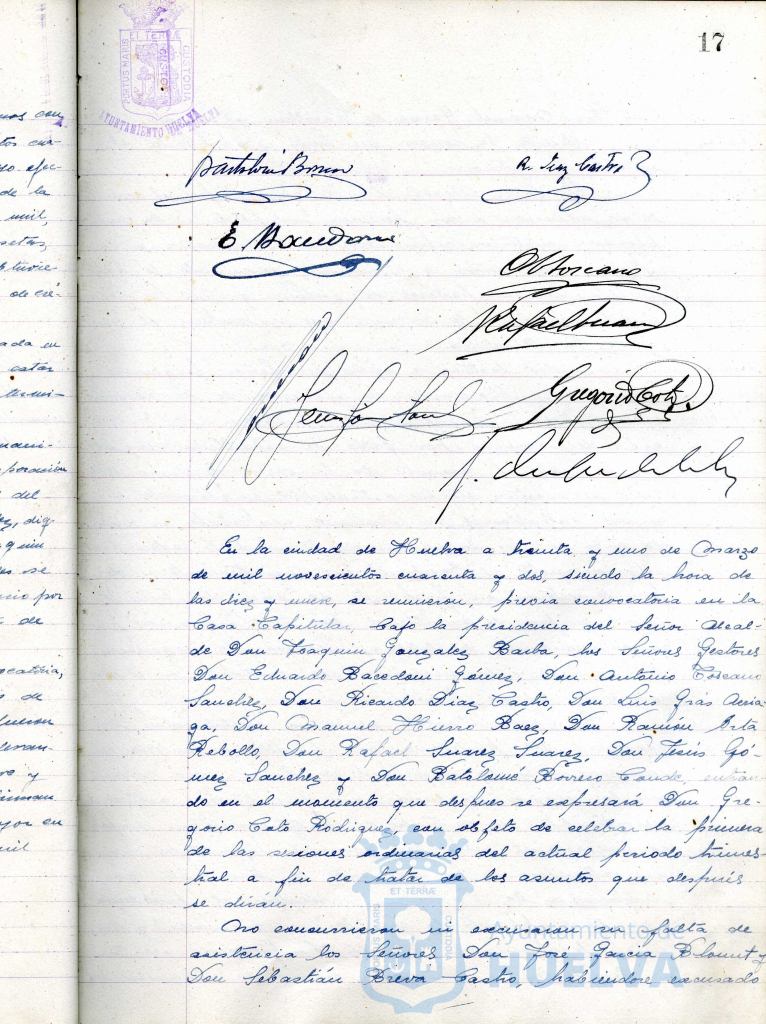 17
PORTUS MARIS
ET TERRÆ
CUSTODIA
AYUNTAMIENTO HUELVA
R. Diaz Castro
E Bacedoni
A Toscano
Rafael Suarez
Gregorio Coto
mos con
de la
mil,
setas,
de cré-
ada en
estar
termi-
poración
del
dig
se
por
de
ocatoria,
de
y
en
mil
En la ciudad de Huelva a treinta y uno de Marzo
de mil novescientos cuarenta y dos, siendo la hora de
las diez y nueve, se reunieron, previa convocatoria en la
Casa Capitular, bajo la presidencia del Señor Alcal-
de Don Joaquin Gonzalez Barba, los Señores Gestores
Don Eduardo Bacedoni Gómez, Don Antonio Toscano
Sanchez, Don Ricardo Diaz Castro, Don Luis Grás Arria-
ga, Don Manuel Hierro Baez, Don Ramón Orta
Rebollo, Don Rafael Suarez Suarez, Don Jesús Gó-
mez Sanchez y Don Batolomé Borrero Conde, entran-
do en el momento que despues se expresará Don Gre-
gorio Coto Rodriguez, con objeto de celebrar la primera
de las sesiones ordinarias del actual periodo trimes-
tral a fin de tratar de los asuntos que después
se dirán.
No concurrieron ni excusaron su falta de
asistencia los Señores Don José Garcia Blount y
Don Sebastián Breva Castro, habiendose excusado
PORTUS MARIS
ET TERRÆ
CUSTODIA
Ayuntamiento de
HUELVA